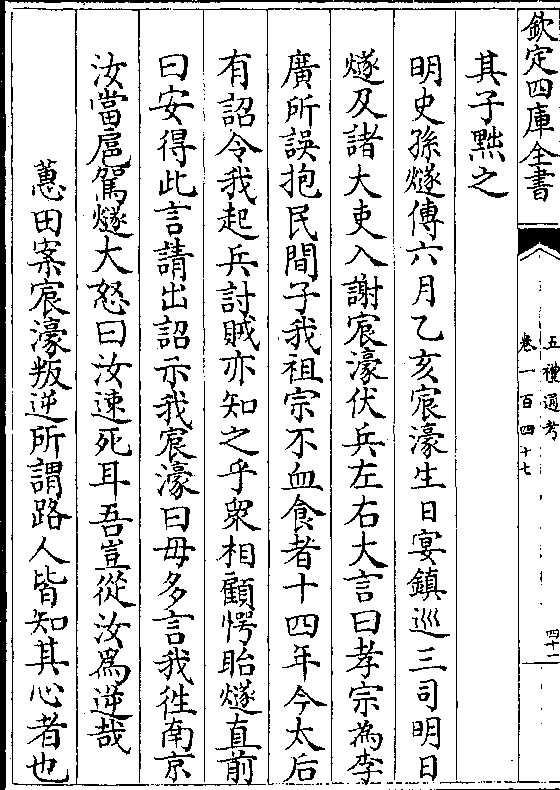 欽定四庫全書
五禮通考
卷一百四十七
四十一
其子黜之
明史孫燧傳六月乙亥宸濠生日宴鎮巡三司明日
燧及諸大吏入謝宸濠伏兵左右大言曰孝宗為李
廣所誤抱民間子我祖宗不血食者十四年今太后
有詔令我起兵討賊亦知之乎衆相顧愕眙燧直前
曰安得此言請出詔示我宸濠曰毋多言我徃南京
汝當扈駕燧大怒曰汝速死耳吾豈從汝為逆哉
蕙田案宸濠叛逆所謂路人皆知其心者也